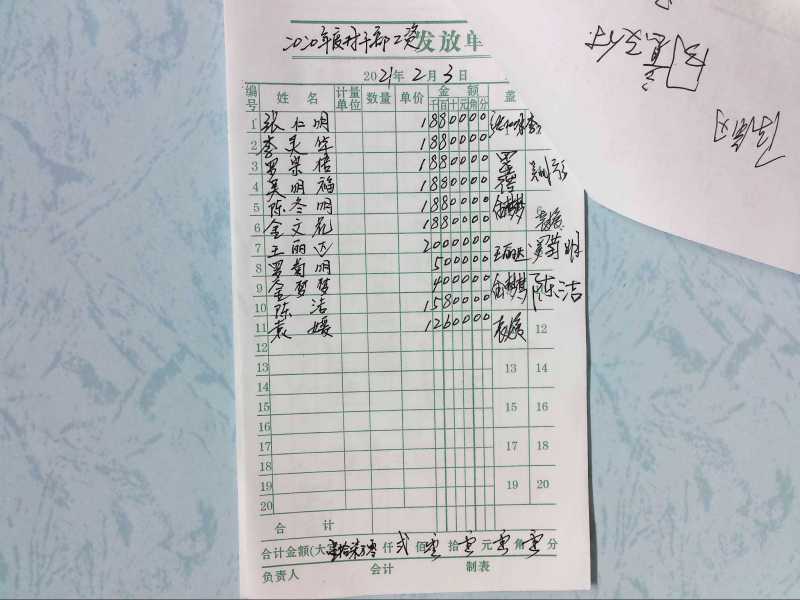 2020年度村干部工资发放单
2021年2月3日
编号 姓名 计量单位 数量 单价 金额 盖
千百十元角分
1 张仁明 1880000
2 李灵华 1880000
3 罗崇梧 1880000
4 吴明福 1880000
5 陈冬明 1880000
6 金文花 1880000
7 王丽达 2000000 王丽达
8 罗菊明 500000 罗菊明
9 金梦梦 400000 金梦梦
10 陈洁 1580000 陈洁
11 袁媛 1260000 袁媛 12
12
13 13 14
14
15 15 16
16
17 17 18
18
19 19 20
20
合计
合计金额(大 壹拾柒万零仟弍佰零拾零元零角零分
负责人 会计 制表